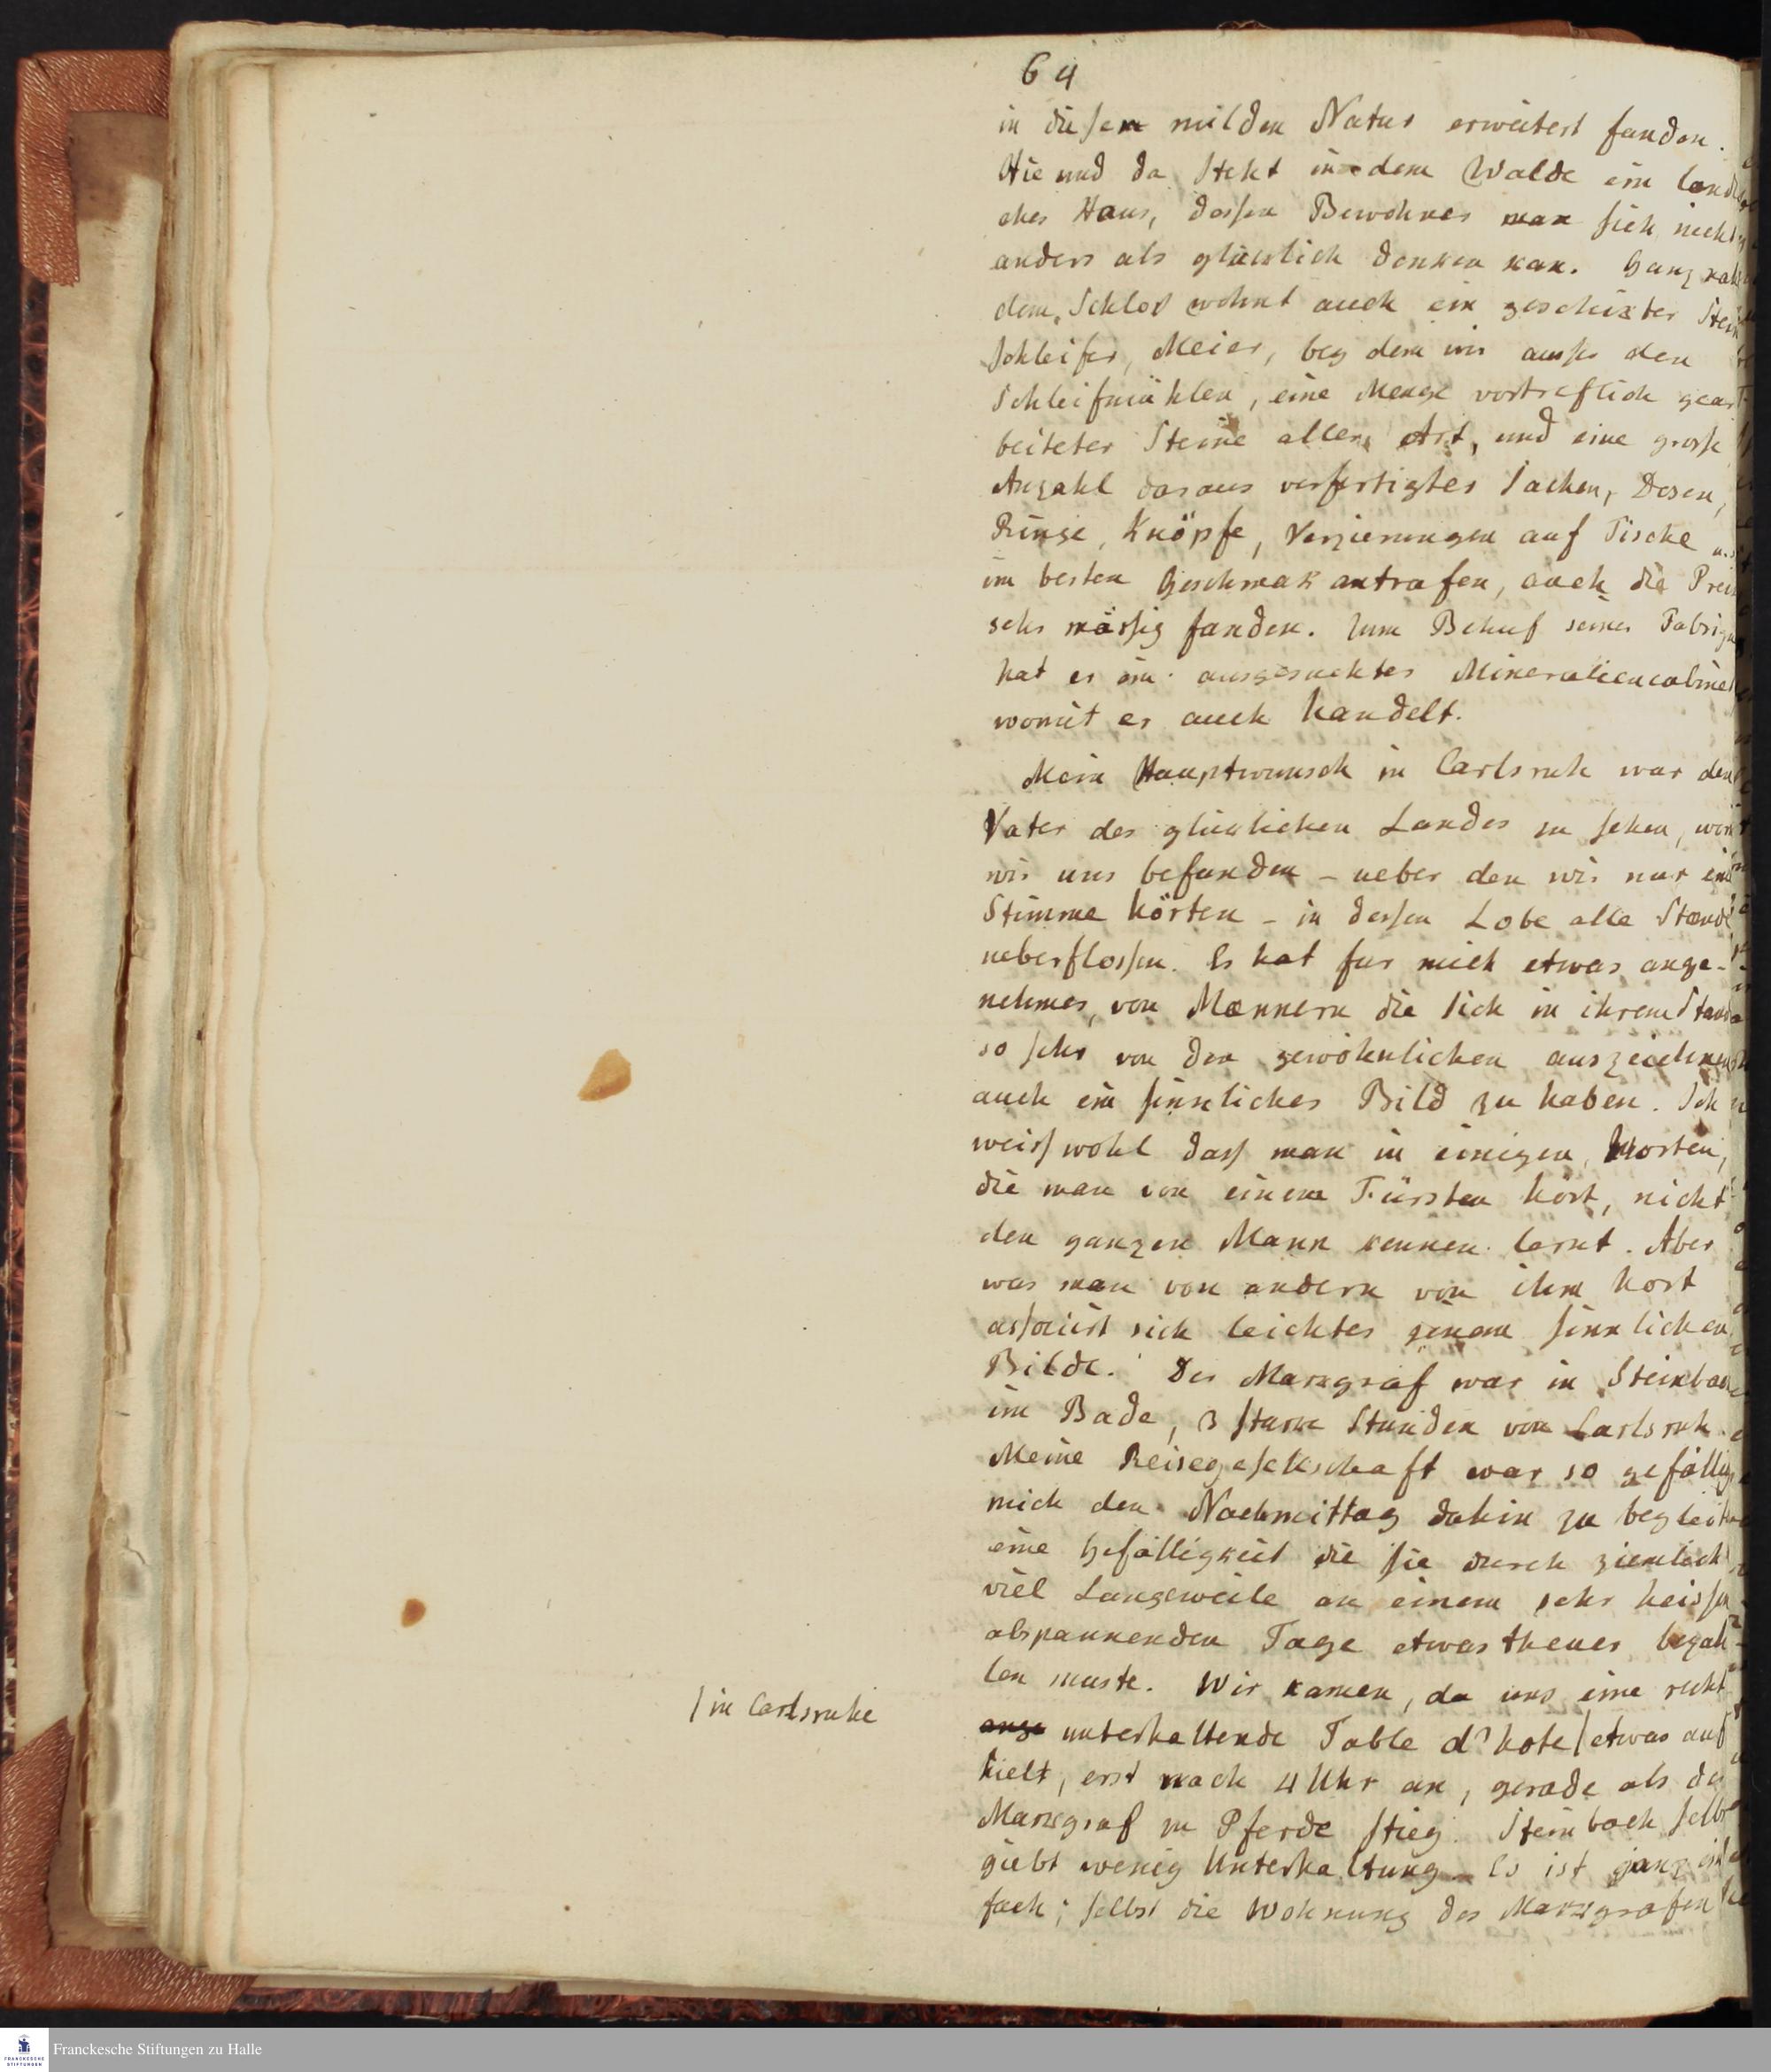 64
in diesem milden Natur erweitert fanden.
Hie und da steht in dem Walde ein
ches Haus, dessen Bewohner man sich nicht
anders als glüklich denken kan. Ganz nah
dem Schlos wohnt auch ein geschikter Stein
schleifer, Meier, bey dem wir ausser den
Schleifmühlen, eine Menge vortreflich gear-
beiteter Steine aller Art, und eine grosse
Anzahl daraus verfertigter Sachen, Dosen,
Ringe, Knöpfe, Verzierungen auf Tische
im besten Geschmak antrafen, auch die
sehr mässig fanden. Zum Behuf seiner Fabrique
hat er ein ausgesuchtes Mineraliencabinet
womit er auch handelt.
Mein Hauptwunsch in Carlsruh war den
Vater des glüklichen Landes zu sehen,
wir uns befunden – ueber den wir nur eine
Stimme hörten – in dessen Lobe alle Stænde
ueberflossen. Es hat fur mich etwas ange-
nehmes, von Mænnern die sich in ihrem Stande
so sehr von den gewöhnlichen auszeichnen
auch ein sinnliches Bild zu haben. Ich
weiss wohl dass man in einigen Worten,
die man von einem Fürsten hört, nicht
den ganzen Mann kennen lernt. Aber
was man von andern von ihm hort
associirt sich leichter jenem sinnlichen
Bilde. Der Markgraf war in Steinbach
im Bade, 3 starke Stunden von Carlsruh.
Meine Reisegesellschaft war so gefällig
mich den Nachmittag dahin zu begleiten
eine Gefälligkeit die sie durch ziemlich
viel Langeweile an einem sehr heissen
abspannenden Tage etwas theuer bezah-
len muste. Wir kamen, da uns eine recht
ange unterhaltende Table d'hote / etwas auf
hielt, erst nach 4 Uhr an, gerade als der
Markgraf zu Pferde stieg. Steinbach selbst
giebt wenig Unterhaltung – Es ist ganz ein
fach; selbst die Wohnung des Markgrafen
/ in Carlsruhe
Franckesche Stiftungen zu Halle